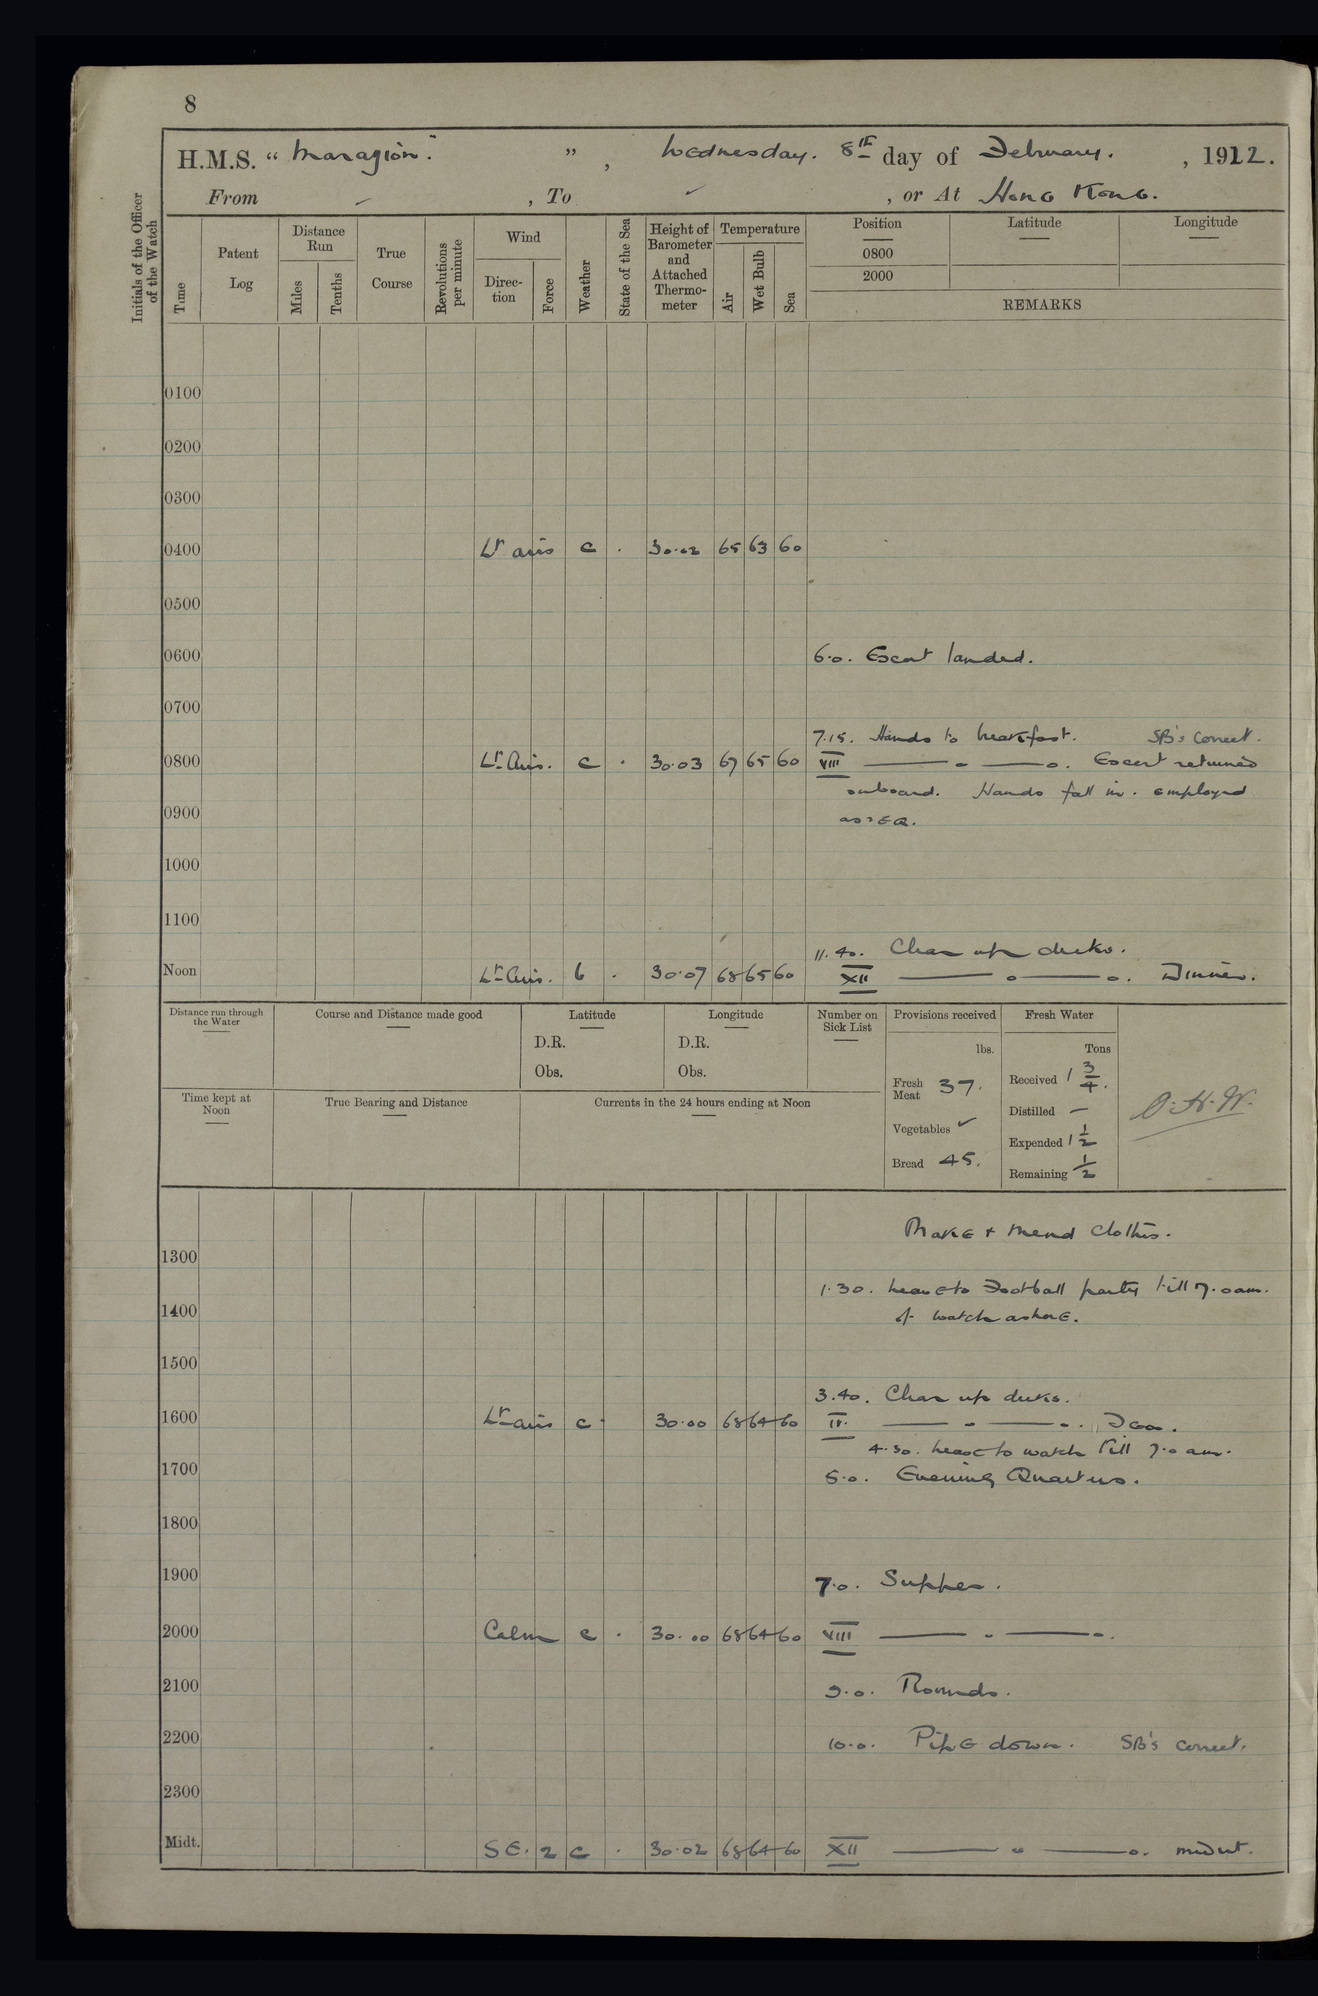 8
H.M.S. "Marazion." ", Wednesday. 8th day of February. , 1922.
From – , To ✓ , or At Hong Kong.
Initials of the Officer of the Watch
Time
Patent Log
Distance Run
Miles
Tenths
True Course
Revolutions per minute
Wind
Direction
Force
Weather
State of the Sea
Height of Barometer and Attached Thermometer
Temperature
Air
Wet Bulb
Sea
Position
Latitude
Longitude
0800
2000
REMARKS
0100
0200
0300
0400 Lt airs c . 30.02 65 63 60
0500
0600 6.0. Escort landed.
0700
7.15. Hands to breakfast. SB's correct.
0800 Lt Airs. c . 30.03 67 65 60 VIII ——— o ——— o. Escort returned
onboard. Hands fall in. employed
0900 as req.
1000
1100
11.40. Clear up decks.
Noon Lt Airs. b . 30.07 68 65 60 XII ——— o ——— o. Dinner.
Distance run through the Water
Course and Distance made good
Latitude
D.R.
Obs.
Longitude
D.R.
Obs.
Number on Sick List
Provisions received
lbs.
Fresh Meat 37.
Vegetables ✓
Bread 45.
Fresh Water
Tons
Received 1 3/4.
Distilled —
Expended 1 1/2
Remaining 1/2
O.H.W.
Time kept at Noon
True Bearing and Distance
Currents in the 24 hours ending at Noon
Make & Mend Clothes.
1300
1.30. leave to Football party till 7.0 am.
1400 of watch ashore.
1500
3.40. Clear up decks.
1600 Lt airs c . 30.00 68 64 60 IV. ——— o ——— o. Tea.
4.30. leave to watch till 7.0 am.
1700 5.0. Evening Quarters.
1800
1900 7.0. Supper.
2000 Calm c . 30.00 68 64 60 VIII ——— o ——— o.
2100 9.0. Rounds.
2200 10.0. Pipe down. SB's correct.
2300
Midt. S E. 2 c . 30.02 68 64 60 XII ——— o ——— o. midnt.